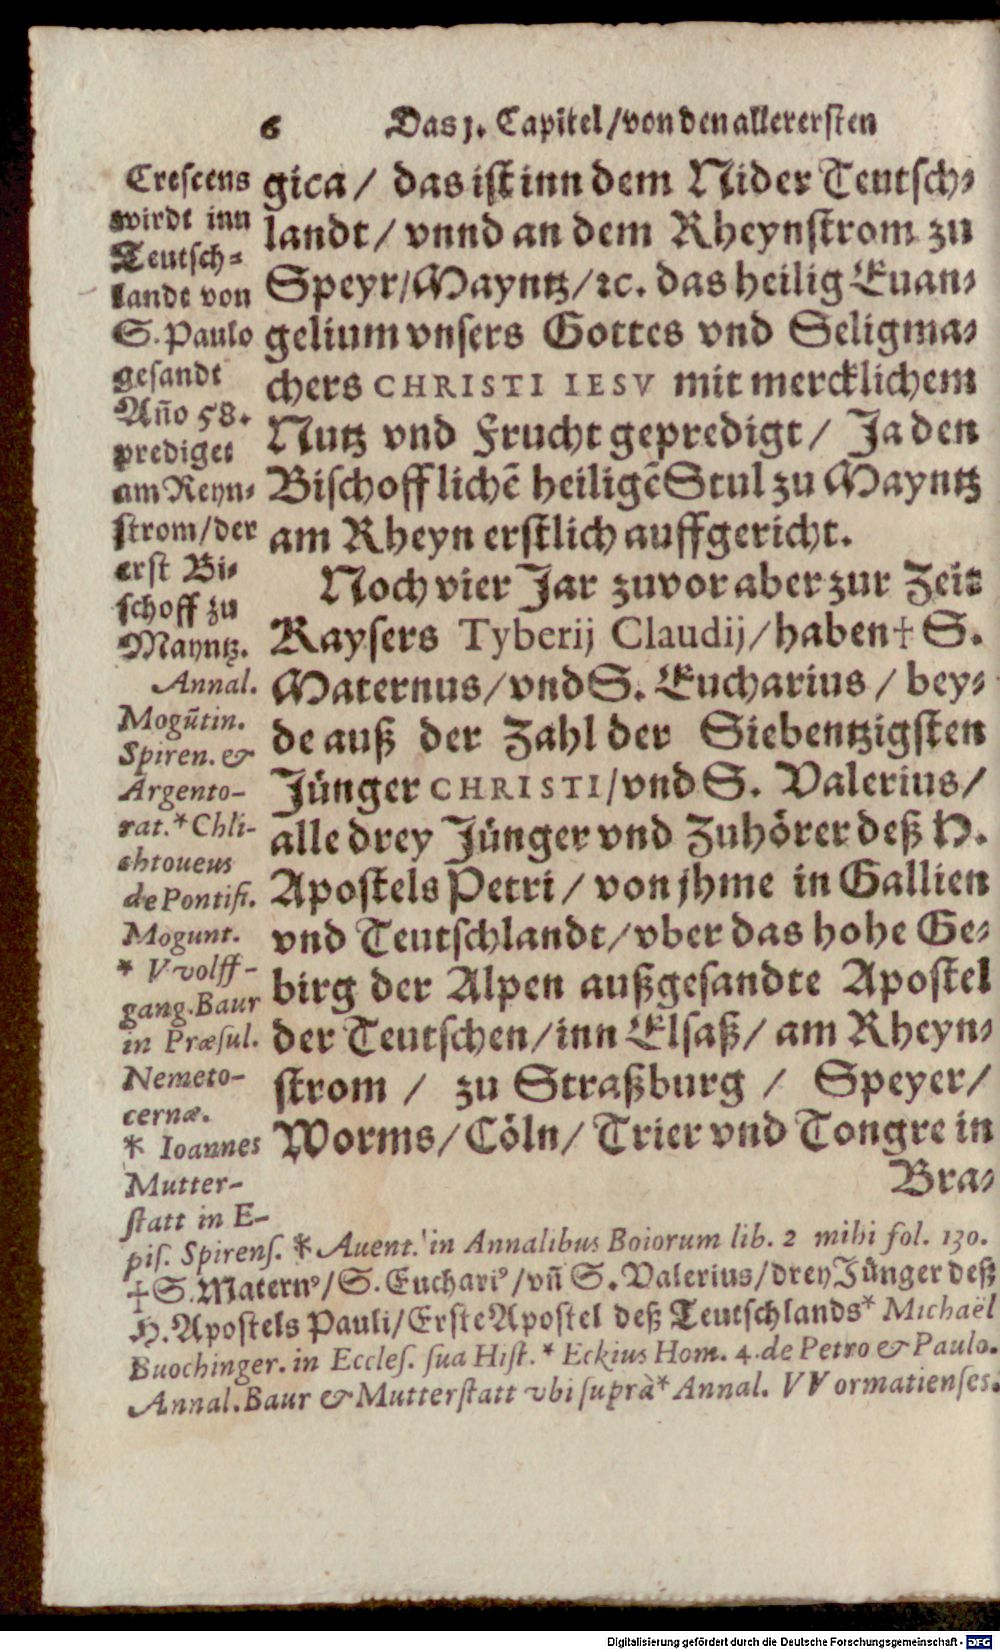 6 Das j. Capitel/von den allerersten
Crescens
wirdt inn
Teutsch-
landt von
S. Paulo
gesandt
Año 58.
prediget
am Reyn-
strom/der
erst Bi-
schoff zu
Mayntz.
Annal.
Mogũtin.
Spiren. &
Argento-
rat.* Chli-
chtoveus
de Pontifi.
Mogunt.
* VVolff-
gang. Baur
in Præsul.
Nemeto-
cernæ.
* Ioannes
Mutter-
statt in E-
pis. Spirens. * Auent. in Annalibus Boiorum lib. 2 mihi fol. 130.
gica / das ist inn dem Nider Teutsch-
landt / vnnd an dem Rheynstrom zu
Speyr/Mayntz/ꝛc. das heilig Euan-
gelium vnsers Gottes vnd Seligma-
chers CHRISTI IESV mit mercklichem
Nutz vnd Frucht gepredigt / Ja den
Bischofflichẽ heiligẽ Stul zu Mayntz
am Rheyn erstlich auffgericht.
Noch vier Jar zuvor aber zur Zeit
Kaysers Tyberij Claudij/haben† S.
Maternus/vnd S. Eucharius / bey-
de auß der Zahl der Siebentzigsten
Jünger CHRISTI/vnd S. Valerius/
alle drey Jünger vnd Zuhörer deß H.
Apostels Petri / von jhme in Gallien
vnd Teutschlandt/vber das hohe Ge-
birg der Alpen außgesandte Apostel
der Teutschen/inn Elsaß/ am Rheyn-
strom / zu Straßburg / Speyer/
Worms/Cöln/Trier vnd Tongre in
Bra-
†S. Maternꝰ/S. Euchariꝰ/vñ S. Valerius/drey Jünger deß
H. Apostels Pauli/Erste Apostel deß Teutschlands* Michaël
Buochinger. in Eccles. sua Hist.* Eckius Hom. 4. de Petro & Paulo.
Annal. Baur & Mutterstatt vbi suprà* Annal. VVormatienses.
Digitalisierung gefördert durch die Deutsche Forschungsgemeinschaft - DFG